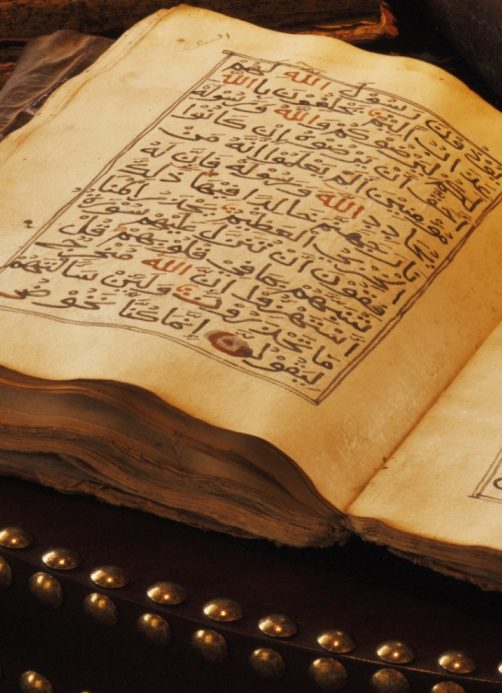 رسول الله لهم
عذاب اليم يحلفون بالله
لكم ليرضوكم والله ورسوله
احق ان يرضوه ان كانوا
مومنين الم يعلموا انه من
يحادد الله ورسوله فان له
نار جهنم خالدا فيها ذلك
الخزي العظيم يحذر المنا
فقون ان تنزل عليهم سورة
تنبئهم بما في قلوبهم قل
استهزءوا ان الله مخرج
ما تحذرون ولئن سالتهم
ليقولن انما كنا نخوض